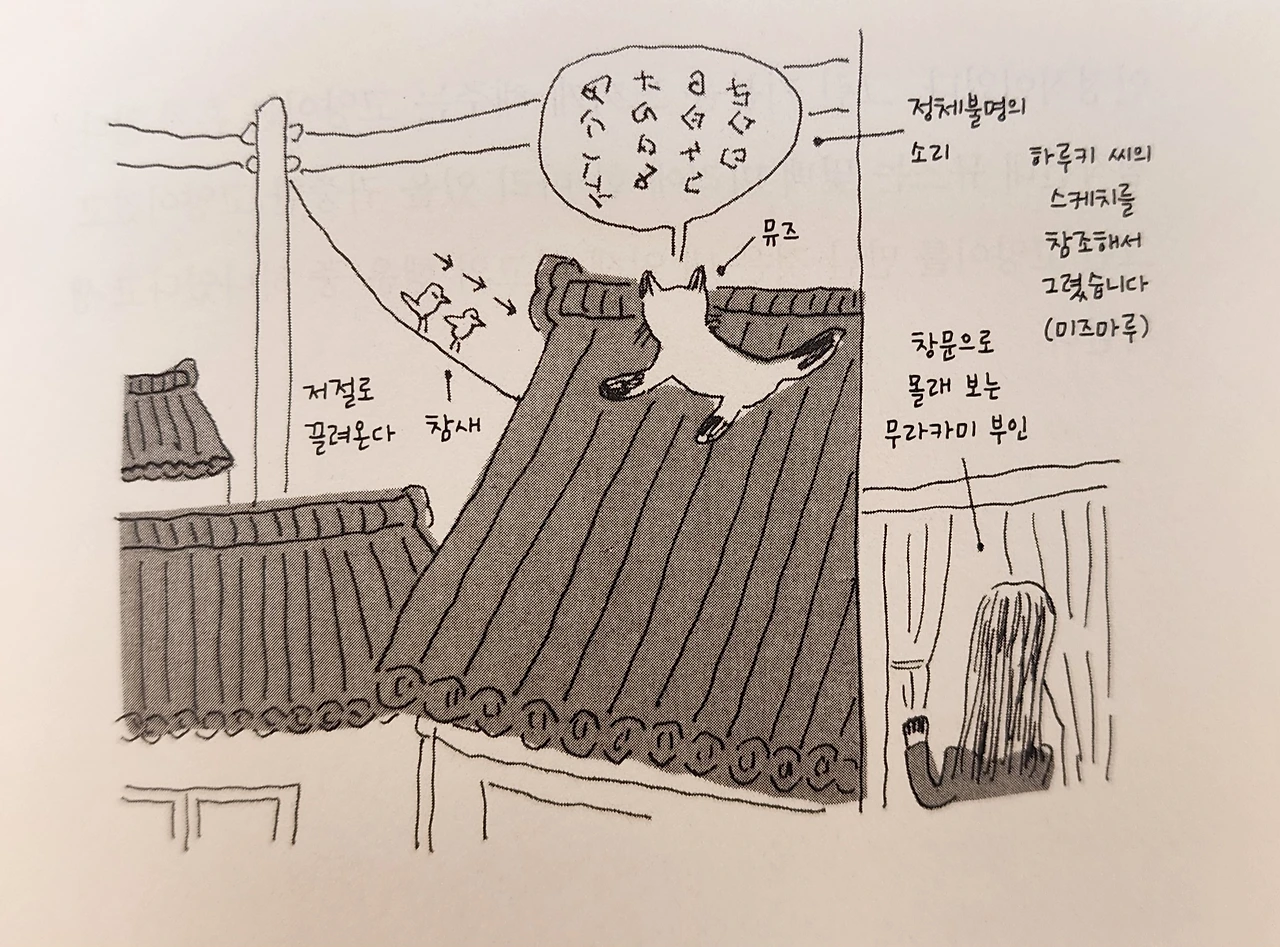 정체불명의
소리
하루키 씨의
스케치를
참조해서
그렸습니다
(미즈마루)
뮤즈
창문으로
몰래 보는
무라카미 부인
저절로
끌려온다
참새